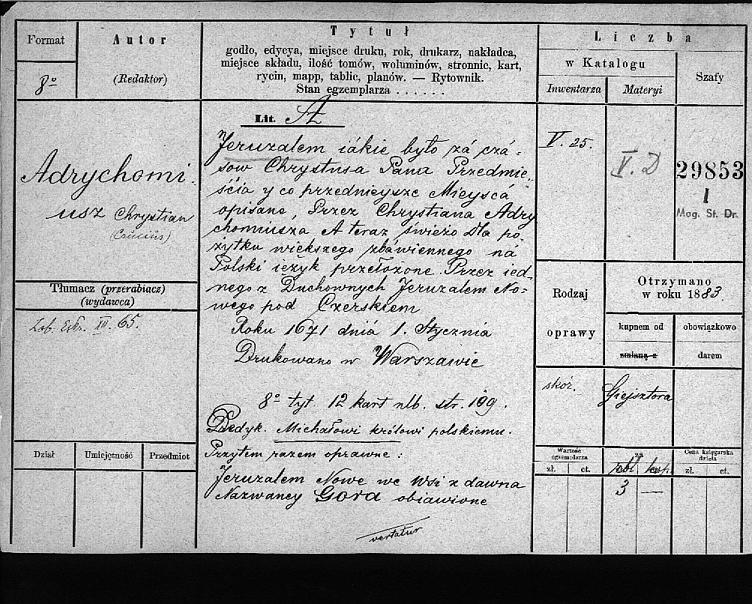 Format
8o
Autor
(Redaktor)
Tytuł
godło, edycya, miejsce druku, rok, drukarz, nakładca,
miejsce składu, ilość tomów, woluminów, stronnic, kart,
rycin, mapp, tablic, planów. — Rytownik.
Stan egzemplarza . . . . . .
Liczba
w Katalogu
Inwentarza
Materyi
Szafy
Adrychomi-
usz Chrystian
Tłumacz (przerabiacz)
(wydawca)
Zob. Estr. XII. 65.
Dział
Umiejętność
Przedmiot
Lit. A
Jeruzalem iákie było zá czá-
sow Chrystusa Pana Przedmie-
śćia y co przednieysze Mieyscá
opisane, Przez Chrystiana Adry
chomiusza A teraz świeżo Dla po-
żytku większego zbáwiennego ná
Polski ięzyk, przełożone Przez ied-
nego z Duchownych Jeruzalem No-
wego pod Czerskiem
Roku 1671 dnia 1. Stycznia
Drukowano w Warszawie
8o tyt 12 kart nlb. str. 199.
Dedyk. Michałowi królowi polskiemu.
Przytem razem oprawne:
Jeruzalem Nowe we Wsi z dawna
Nazwaney Gord obiawione
vertatur
V. 25.
V. D
29853
I
Mag. St. Dr.
Rodzaj
oprawy
Otrzymano
w roku 1883
kupnem od
zamianą z
obowiązkowo
darem
skór.
Giejsztora
Wartość
egzemplarza
zł.
ct.
za
rbl.
kop.
Cena księgarska
dzieła
zł.
ct.
3 —